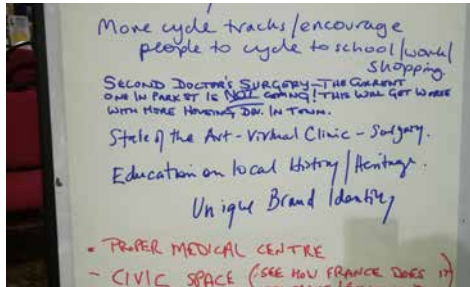 More cycle tracks/encourage
people to cycle to school/work/
shopping.
SECOND DOCTOR'S SURGERY - THE CURRENT
ONE IN PARK ST IS NOT COPING! THIS WILL GET WORSE
WITH MORE HOUSING DEV. IN TOWN.
State of the Art - Virtual Clinic - Surgery.
Education on local History/Heritage.
Unique Brand Identity
• PROPER MEDICAL CENTRE
- CIVIC SPACE (SEE HOW FRANCE DOES IT)